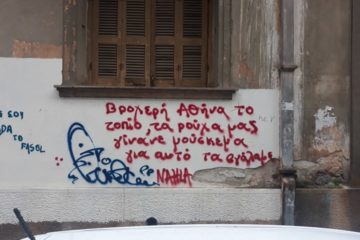 Βροχερή Αθήνα το
τοπίο, τα ρούχα μας
γίνανε μούσκεμα
για αυτό τα βγάλαμε
SOY
TO
FASOL